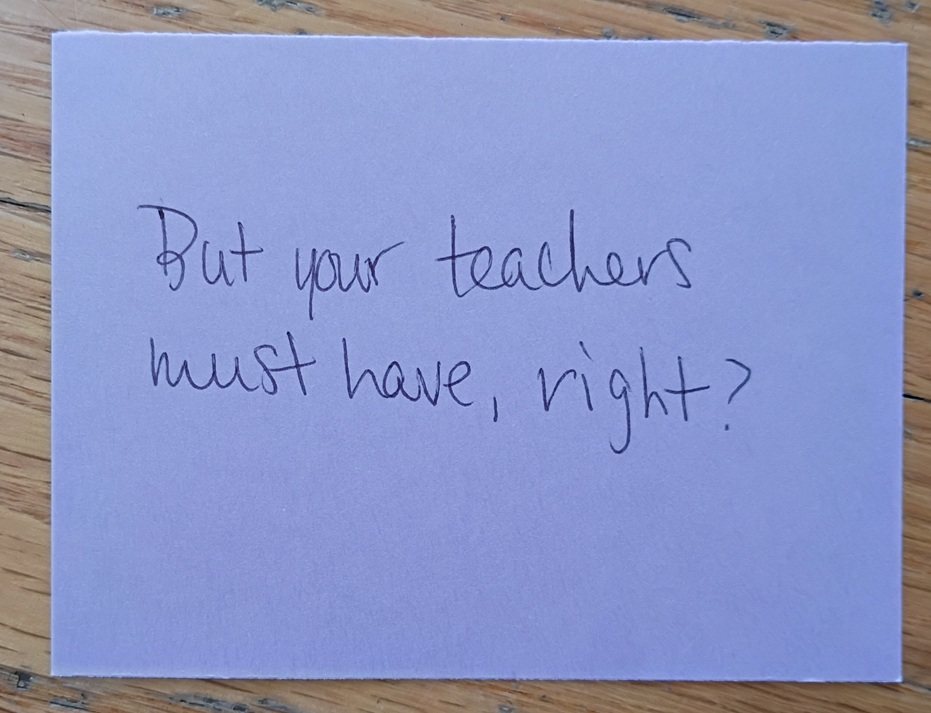 But your teachers
must have, right?